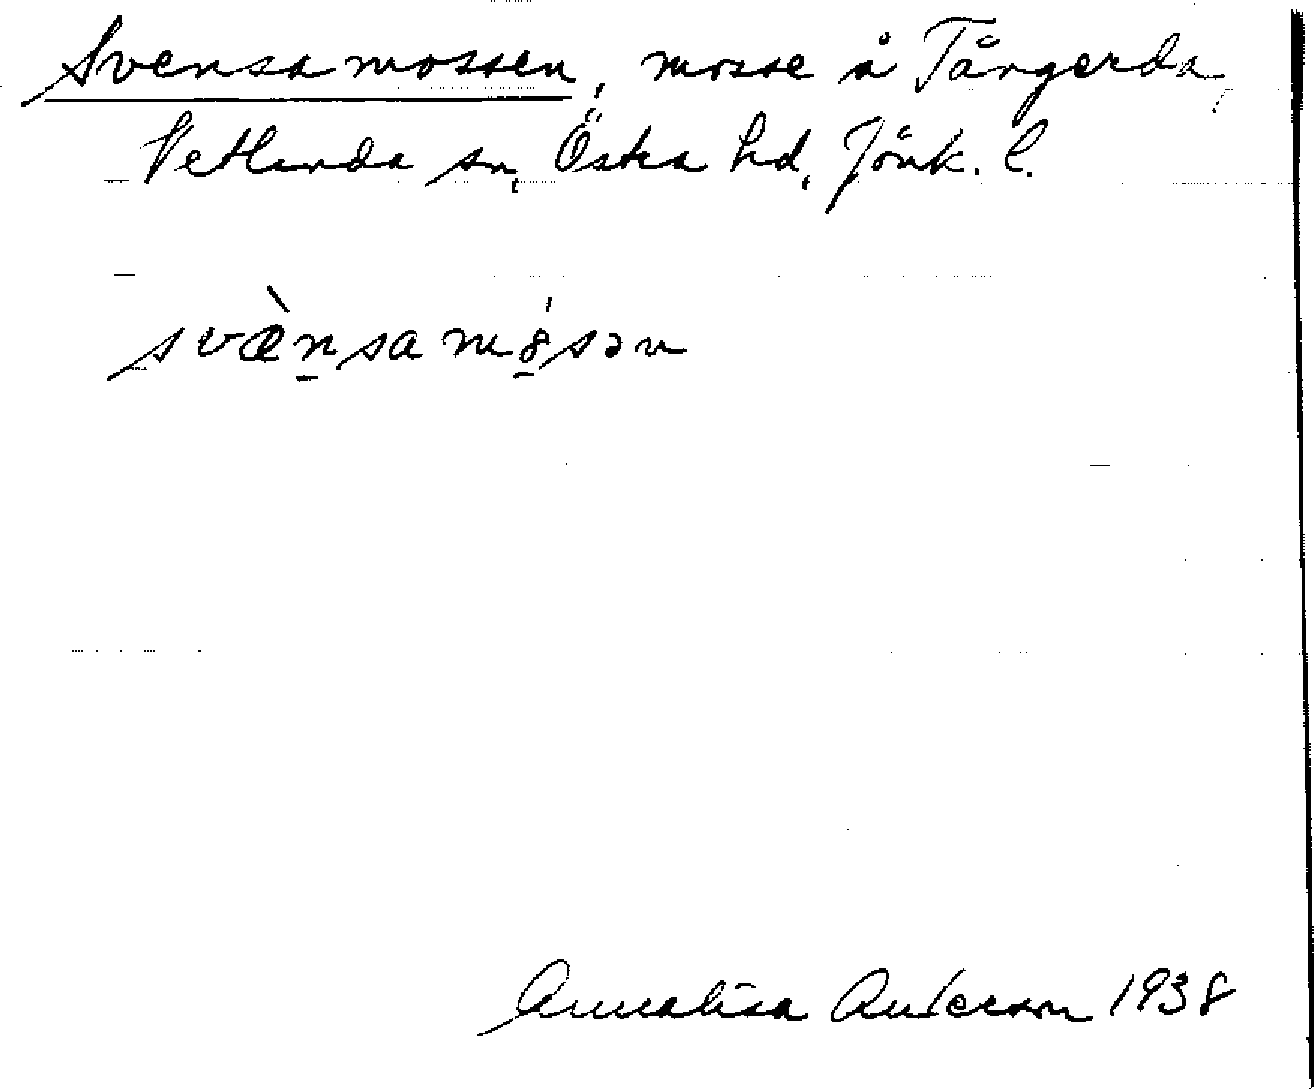 Svensamossen, mosse å Tångerda,
Vetlanda sn, Östra hd, Jönk. l.
svæ̀n̠samó̠sən
Annalisa Anderson 1938